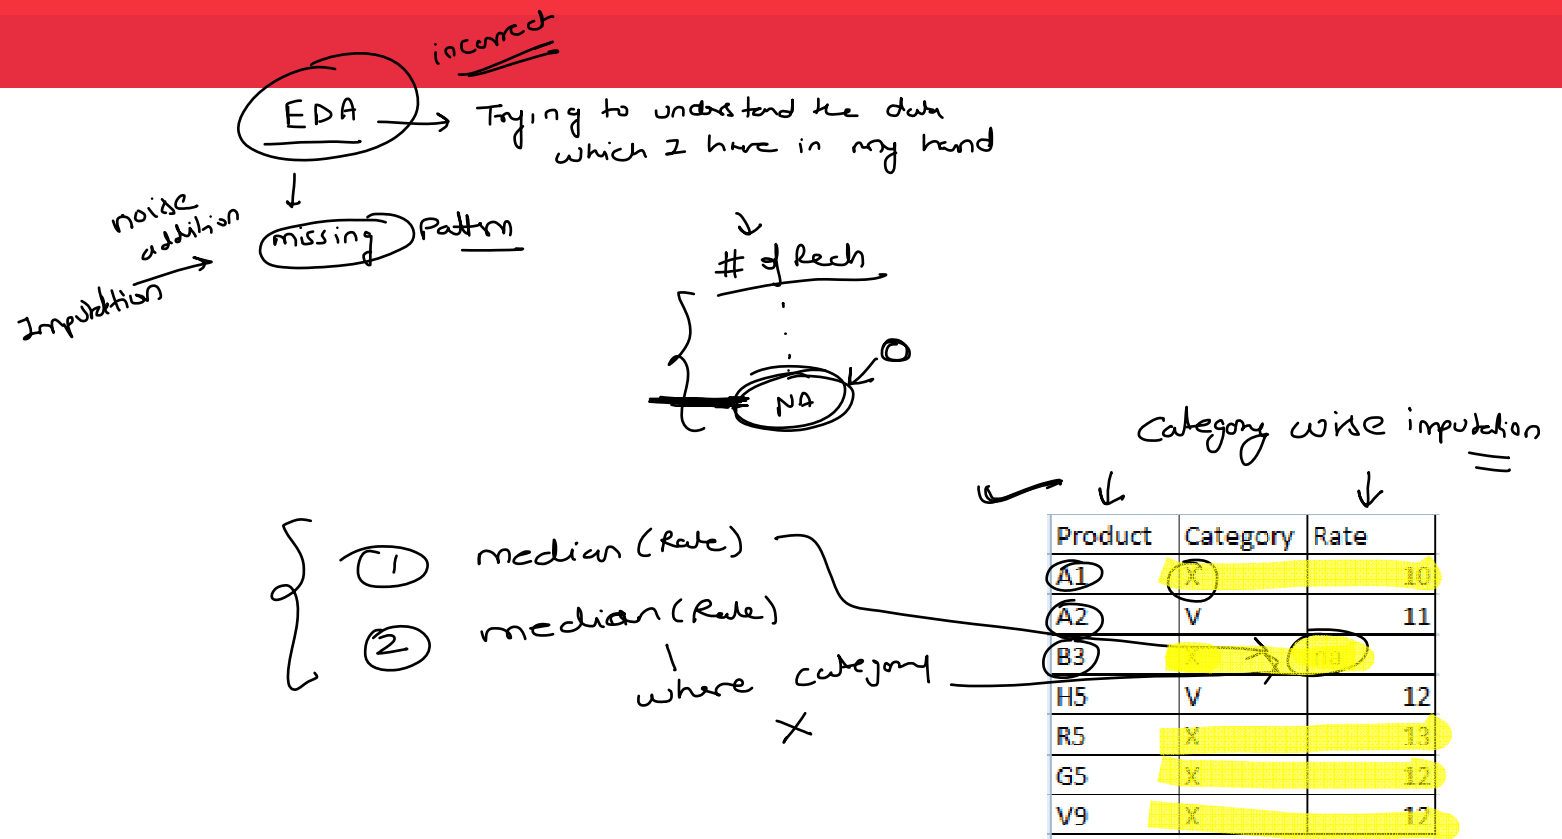 incorrect
EDA → Trying to understand the data
which I have in my hand
noise
addition
missing Pattern
Imputation
# of Rech
NA
0
Category wise imputation
1 median (Rate)
2 median (Rate)
where category
X
Product Category Rate
A1 X 10
A2 V 11
B3 X na
H5 V 12
R5 X 13
G5 X 12
V9 X 12